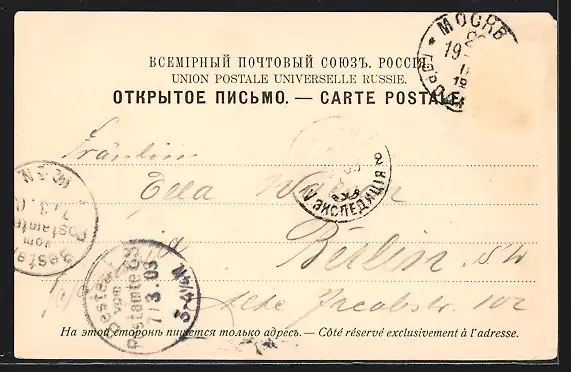 ВСЕМІРНЫЙ ПОЧТОВЫЙ СОЮЗЪ. РОССІЯ.
UNION POSTALE UNIVERSELLE RUSSIE.
ОТКРЫТОЕ ПИСЬМО. — CARTE POSTALE.
МОСКВ
19
Fräulein
2
ЭКСПЕДИЦІЯ
Berlin SW
Alte Jacobstr. 102
7.3.
Postamte
vom
Bestellt
Bestellt
vom
Postamte
7/3.03
На этой сторонѣ пишется только адресъ. — Côté réservé exclusivement à l'adresse.